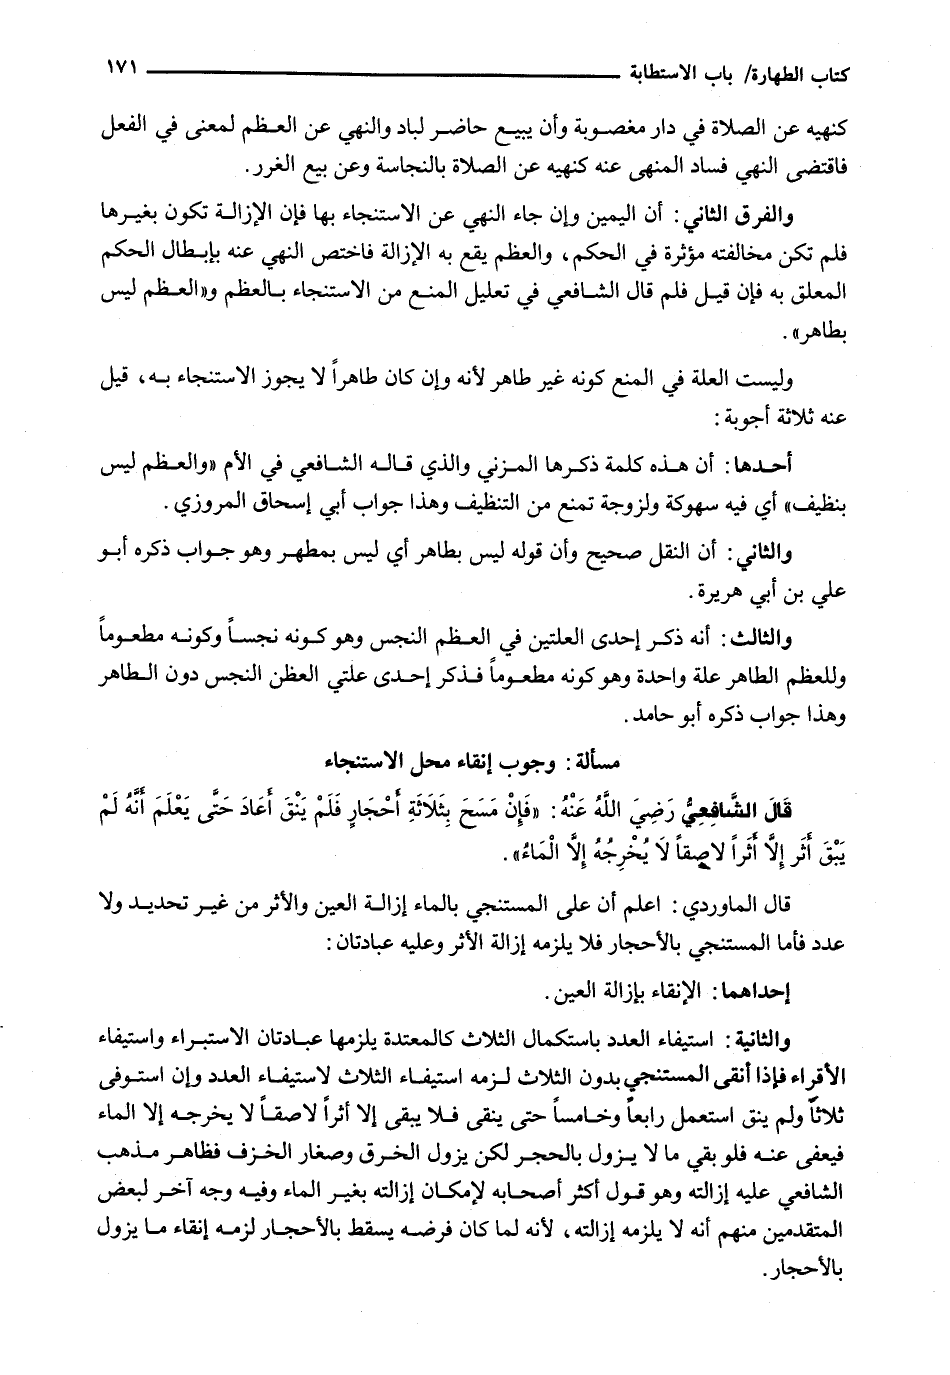 كتاب الطهارة/ باب الاستطابة ١٧١
كنهيه عن الصلاة في دار مغصوبة وأن يبيع حاضر لباد والنهي عن العظم لمعنى في الفعل
فاقتضى النهي فساد المنهى عنه كنهيه عن الصلاة بالنجاسة وعن بيع الغرر.
والفرق الثاني: أن اليمين وإن جاء النهي عن الاستنجاء بها فإن الإزالة تكون بغيرها
فلم تكن مخالفته مؤثرة في الحكم، والعظم يقع به الإزالة فاختص النهي عنه بإبطال الحكم
المعلق به فإن قيل فلم قال الشافعي في تعليل المنع من الاستنجاء بالعظم و«العظم ليس
بطاهر».
وليست العلة في المنع كونه غير طاهر لأنه وإن كان طاهراً لا يجوز الاستنجاء به، قيل
عنه ثلاثة أجوبة:
أحدها: أن هذه كلمة ذكرها المزني والذي قاله الشافعي في الأم «والعظم ليس
بنظيف» أي فيه سهوكة ولزوجة تمنع من التنظيف وهذا جواب أبي إسحاق المروزي.
والثاني: أن النقل صحيح وأن قوله ليس بطاهر أي ليس بمطهر وهو جواب ذكره أبو
علي بن أبي هريرة.
والثالث: أنه ذكر إحدى العلتين في العظم النجس وهو كونه نجساً وكونه مطعوماً
وللعظم الطاهر علة واحدة وهو كونه مطعوماً فذكر إحدى علتي العظن النجس دون الطاهر
وهذا جواب ذكره أبو حامد.
مسألة: وجوب إنقاء محل الاستنجاء
قَالَ الشَّافِعِيُّ رَضِيَ اللَّهُ عَنْهُ: «فَإِنْ مَسَحَ بِثَلَاثَةِ أَحْجَارٍ فَلَمْ يَنْقَ أَعَادَ حَتَّى يَعْلَمَ أَنَّهُ لَمْ
يَبْقَ أَثَر إِلَّا أَثَراً لاصِقاً لَا يُخْرِجُهُ إِلَّا الْمَاءُ».
قال الماوردي: اعلم أن على المستنجي بالماء إزالة العين والأثر من غير تحديد ولا
عدد فأما المستنجي بالأحجار فلا يلزمه إزالة الأثر وعليه عبادتان:
إحداهما: الإنقاء بإزالة العين.
والثانية: استيفاء العدد باستكمال الثلاث كالمعتدة يلزمها عبادتان الاستبراء واستيفاء
الأقراء فإذا أنقى المستنجي بدون الثلاث لزمه استيفاء الثلاث لاستيفاء العدد وإن استوفى
ثلاثاً ولم ينق استعمل رابعاً وخامساً حتى ينقى فلا يبقى إلا أثراً لاصقاً لا يخرجه إلا الماء
فيعفى عنه فلو بقي ما لا يزول بالحجر لكن يزول الخرق وصغار الخزف فظاهر مذهب
الشافعي عليه إزالته وهو قول أكثر أصحابه لإمكان إزالته بغير الماء وفيه وجه آخر لبعض
المتقدمين منهم أنه لا يلزمه إزالته، لأنه لما كان فرضه يسقط بالأحجار لزمه إنقاء ما يزول
بالأحجار.